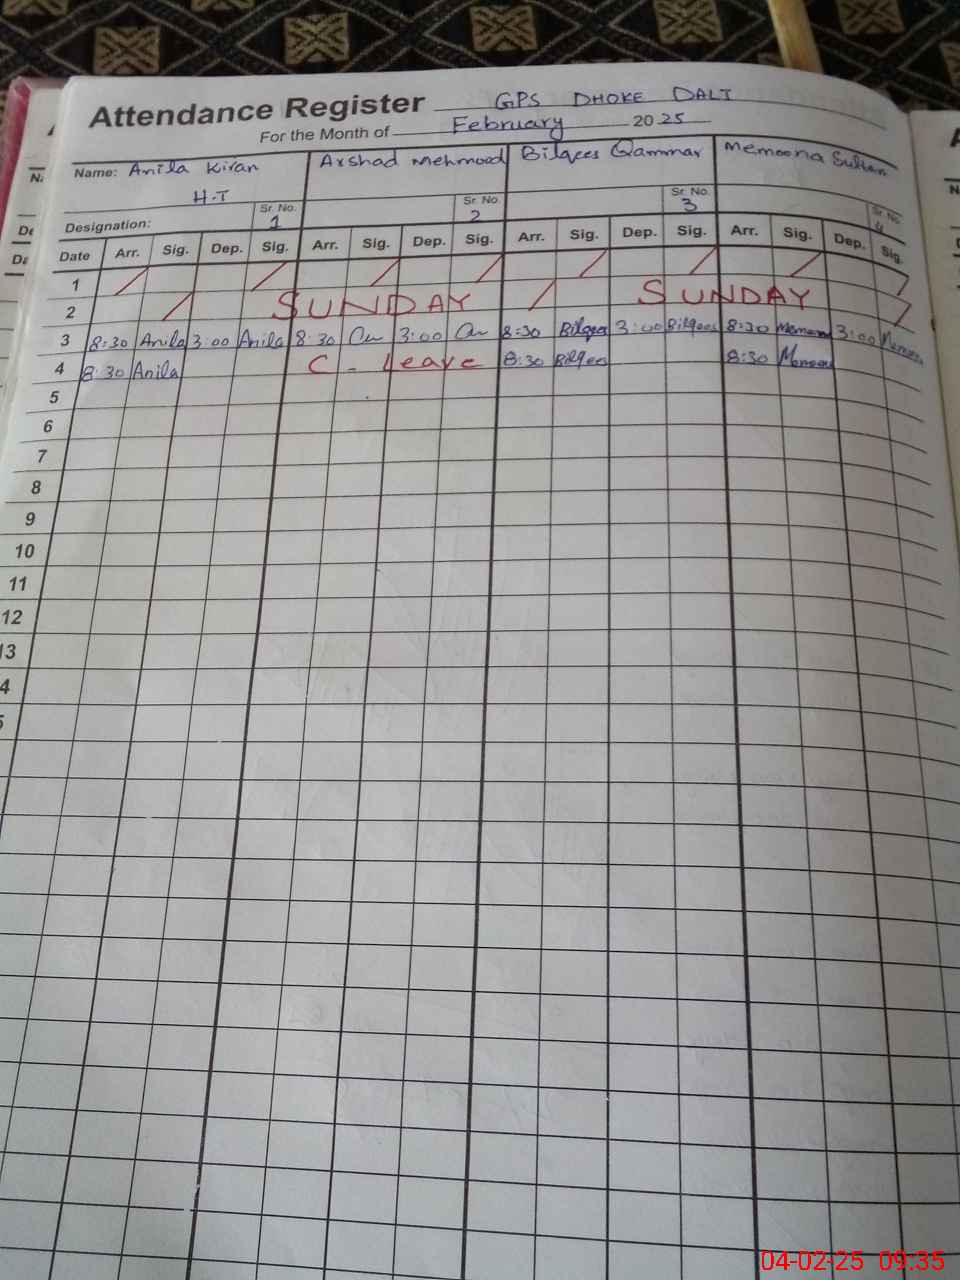 Attendance Register GPS DHOKE DALI
For the Month of February 2025
Name: Anila Kiran Arshad Mehmood Bilqees Qammar Memoona Sultan
H.T
Designation: Sr. No. 1 Sr. No. 2 Sr. No. 3 Sr. No. 4
Date Arr. Sig. Dep. Sig. Arr. Sig. Dep. Sig. Arr. Sig. Dep. Sig. Arr. Sig. Dep. Sig.
1
2 SUNDAY SUNDAY
3 8:30 Anila 3:00 Anila 8:30 3:00 8:30 Bilqees 3:00 Bilqees 8:30 Memoona 3:00 Memoona
4 8:30 Anila C - Leave 8:30 Bilqees 8:30 Memoona
5
6
7
8
9
10
11
12
13
4
5
04-02-25 09:35